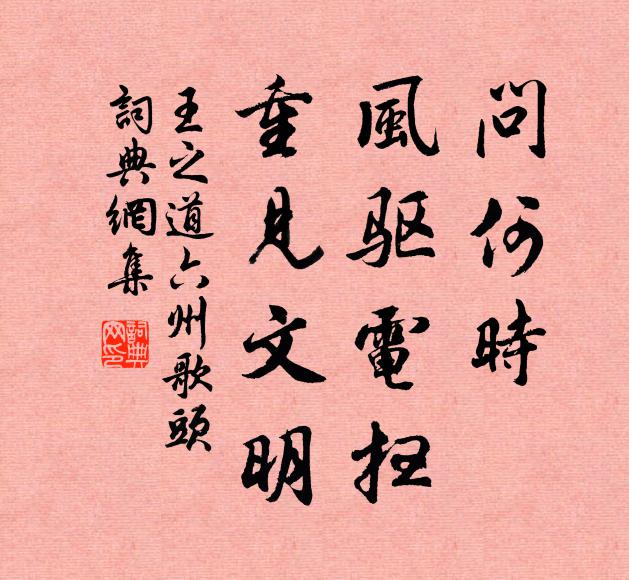 問何時
風驱電扫
重見文明
王之道六州歌頭
詞典網集
詞典
网印